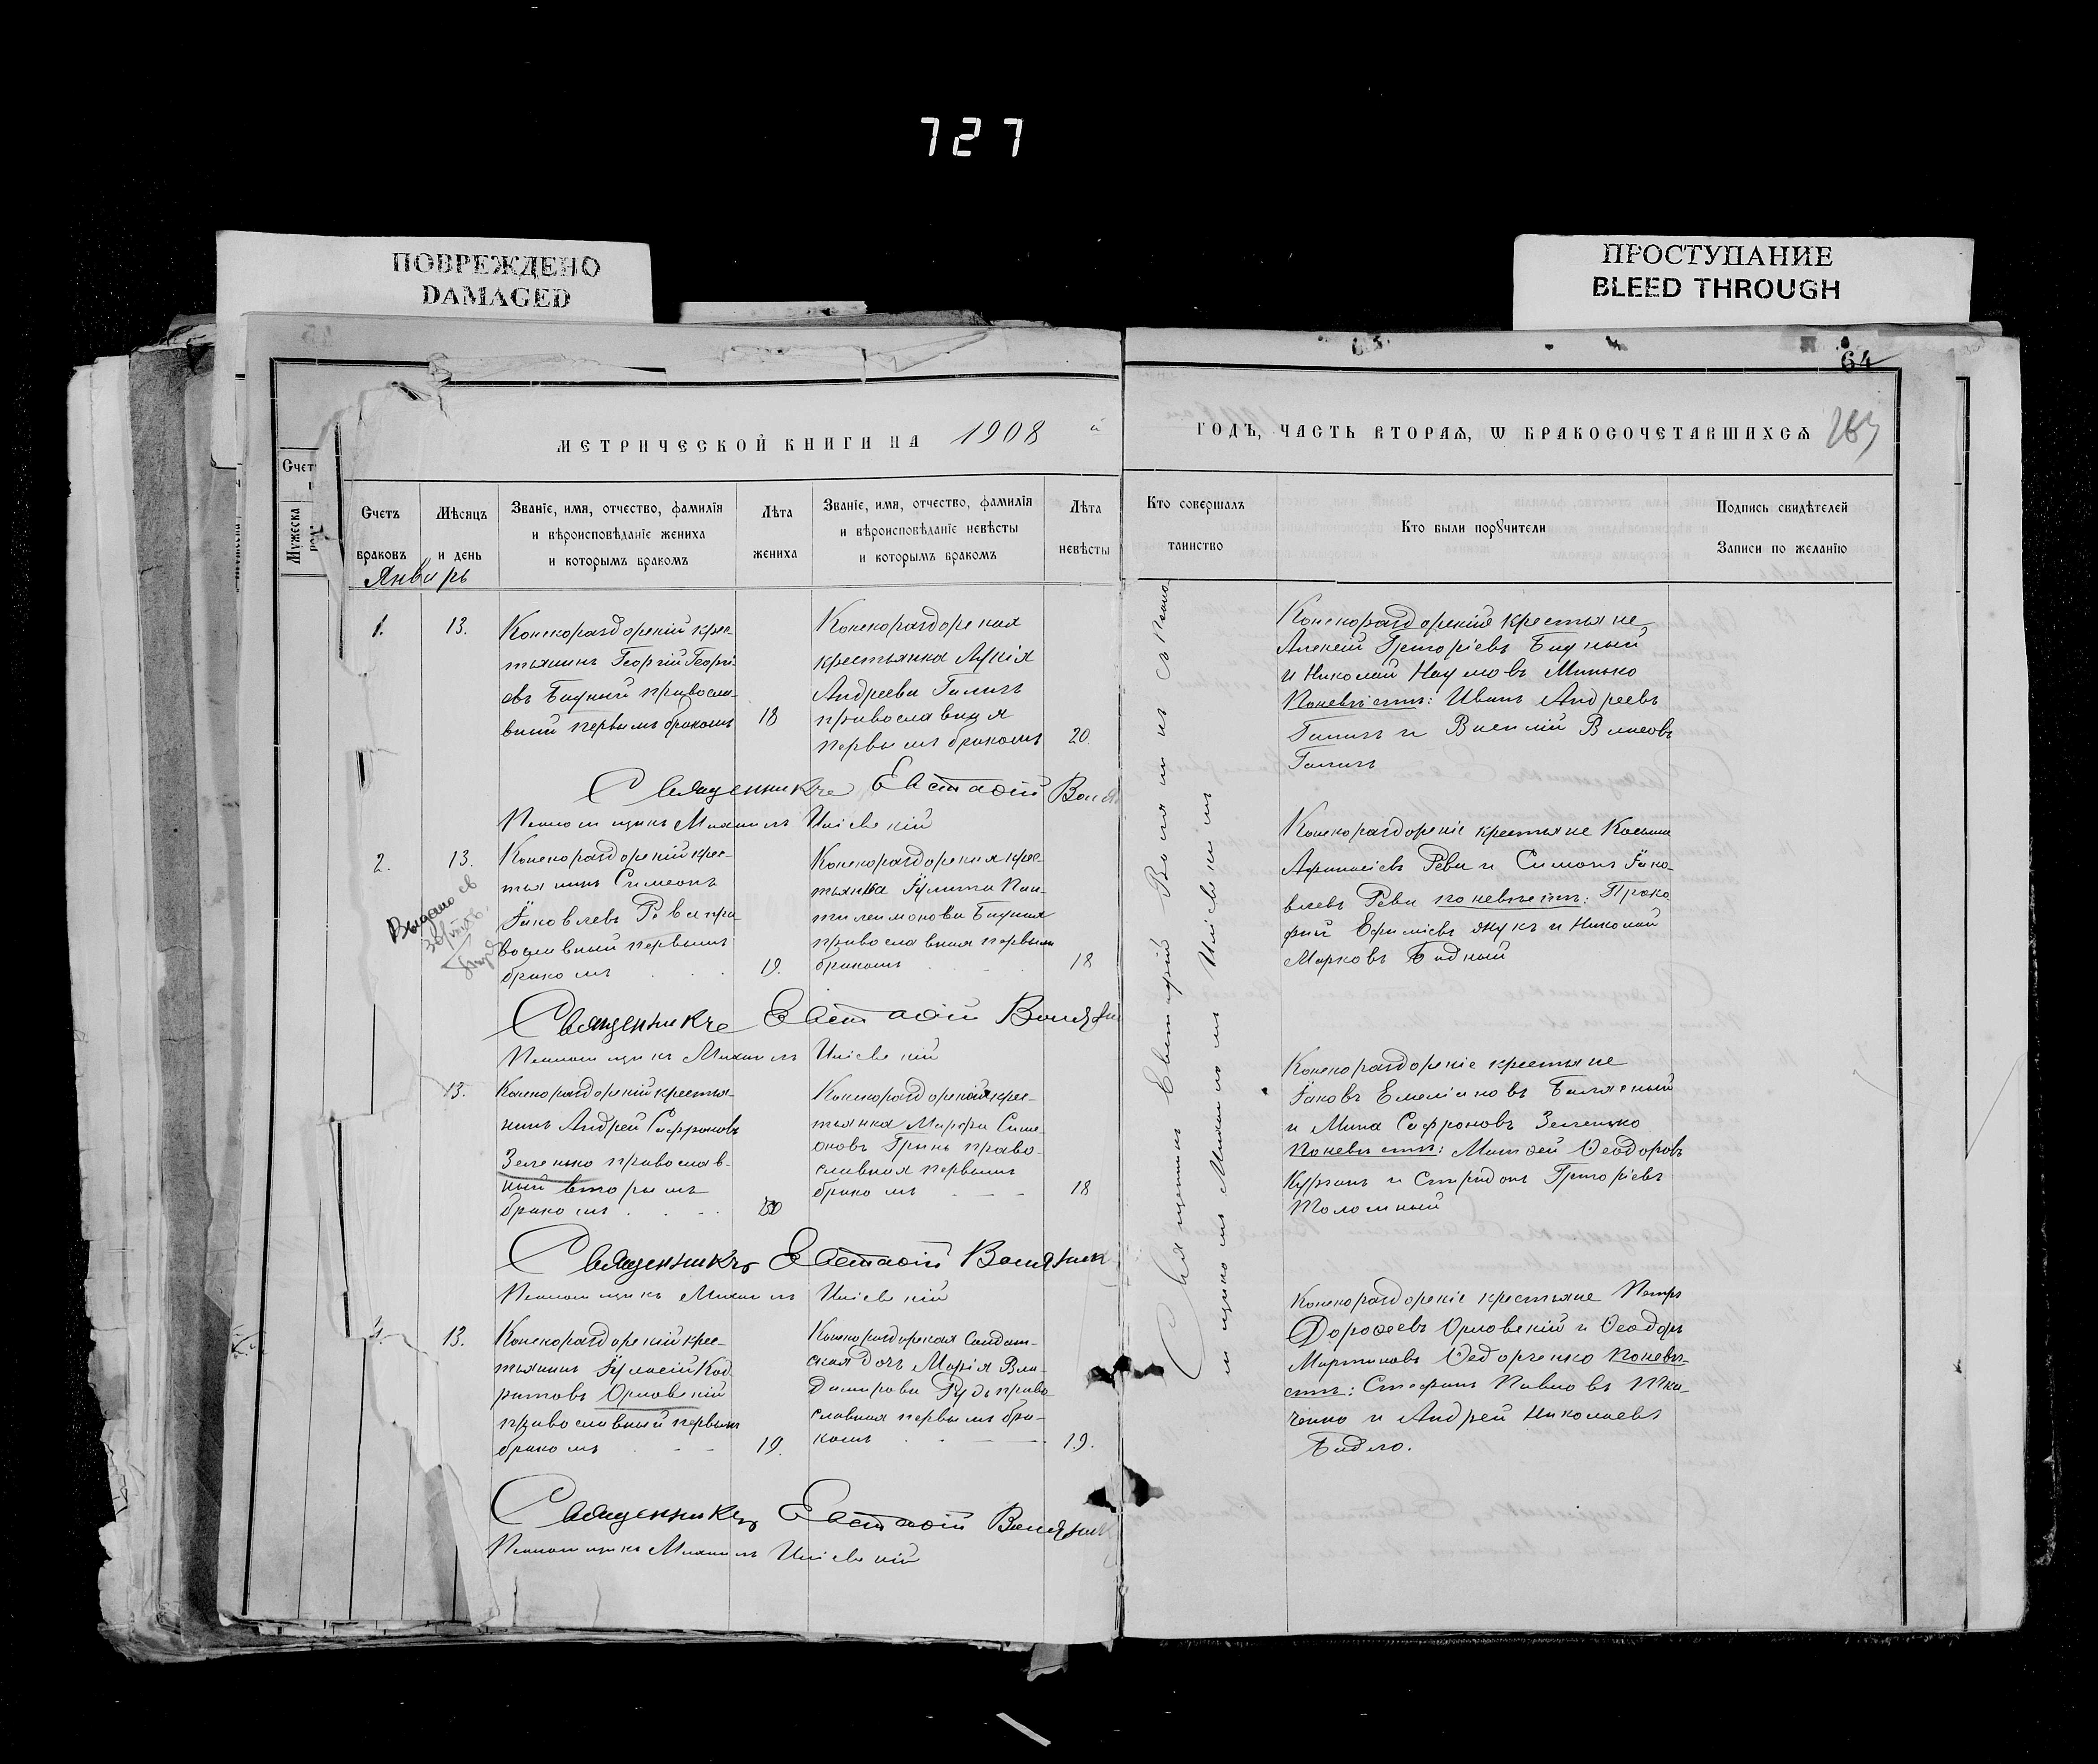 727
ПОВРЕЖДЕНО
DAMAGED
ПРОСТУПАНИЕ
BLEED THROUGH
64
МЕТРИЧЕСКОЙ КНИГИ НА 1908 й
ГОДЪ, ЧАСТЬ ВТОРАЯ, Ѡ БРАКОСОЧЕТАВШИХСЯ
Счет
Мужеска
Счетъ
браковъ
Мѣсяцъ
и день
Званіе, имя, отчество, фамилія
и вѣроисповѣданіе жениха
и которымъ бракомъ
Лѣта
жениха
Званіе, имя, отчество, фамилія
и вѣроисповѣданіе невѣсты
и которымъ бракомъ
Лѣта
невѣсты
Кто совершалъ
таинство
Кто были порꙋчители
Подпись свидѣтелей
Записи по желанію
Январь
1.
13.
Конскораздорскій крес-
тьянинъ Георгій Георгі-
евъ Бидный правосла-
вный первымъ бракомъ
18
Конскораздорская
крестьянка Лукія
Андреева Галичъ
православная
первымъ бракомъ
20.
Конскораздорскіе крестьяне
Алексій Григоріевъ Бидный
и Николай Наумовъ Минько
Поневѣстѣ: Иванъ Андреевъ
Галичъ и Василій Власовъ
Галичъ
Священникъ Евстафій
Псаломщикъ Михаилъ
2.
13.
Выдано св
Конскораздорскій крес-
тьянинъ Симеонъ
Іаковлевъ Рева пра
вославный первымъ
бракомъ
19.
Конскораздорская крес-
тьянка Іулита Пан-
тилеимонова Бидная
православная первымъ
бракомъ
18
Конскораздорскіе крестьяне Косьма
Афанасіевъ Рева и Симонъ Іако-
влевъ Рева поневѣстѣ: Проко
фій Ефиміевъ Жукъ и Николай
Марковъ Бидный
Священникъ Евстафій
Псаломщикъ Михаилъ
13.
Конскораздорскій крестья-
нинъ Андрей Сафроновъ
Зеленько православ-
ный вторымъ
бракомъ
Конскораздорская крес-
тьянка Марфа Симе-
оновъ Гринь право-
славная первымъ
бракомъ
18
Конскораздорскіе крестьяне
Іаковъ Емеліановъ
и Мина Сафроновъ Зеленько
Поневѣстѣ: Матѳей Ѳеодоровъ
Курганъ и Спиридонъ Григоріевъ
Священникъ Евстафій
Псаломщикъ Михаилъ
4.
13.
Конскораздорскій крес-
тьянинъ Іуліанъ Код
ратовъ Орловскій
православный первымъ
бракомъ
19.
Конскораздорская Солдат-
ская дочь Марія Вла-
димирова Рудь право
славная первымъ бра-
комъ
19.
Конскораздорскіе крестьяне Петръ
Дороѳеевъ Орловскій и Ѳеодоръ
Мартиновъ Ѳедорченко поневѣ-
стѣ: Стефанъ Павловъ Тка-
ченко и Андрей Николаевъ
Бидло.
Священникъ Евстафій
Псаломщикъ Михаилъ
Священникъ
съ псало
мщикомъ Михаиломъ